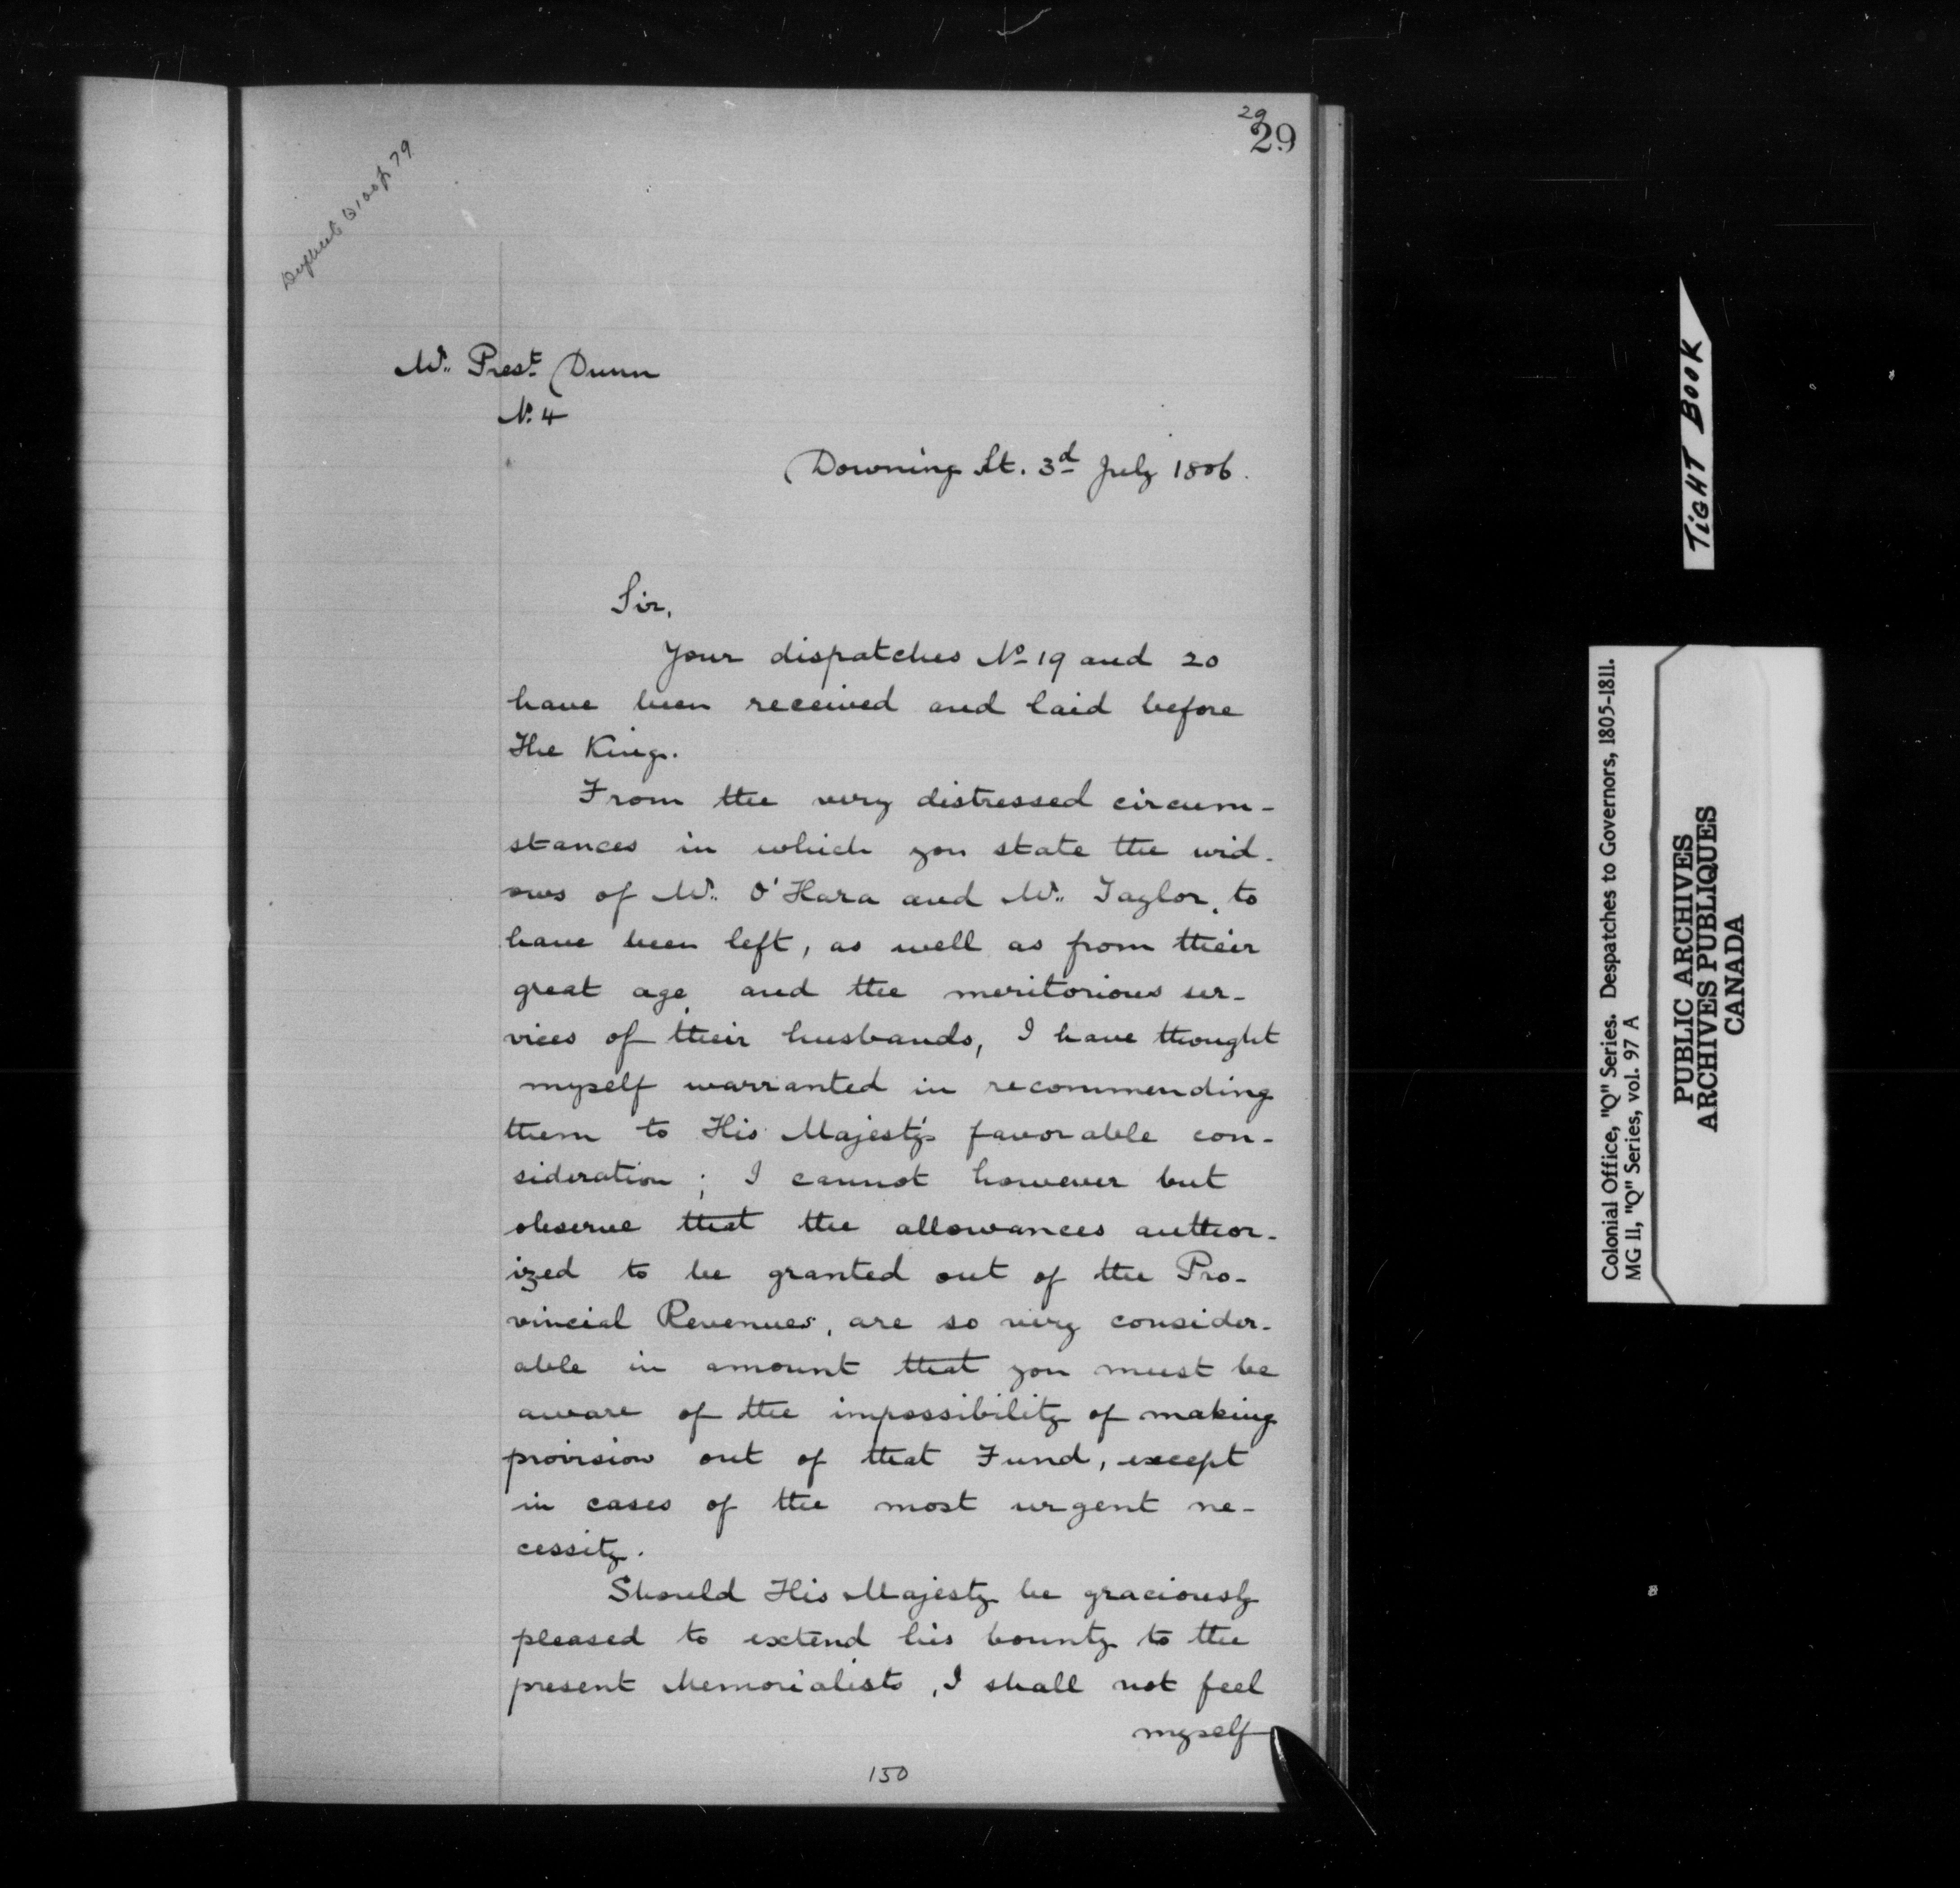 29
29
Mr. Prest. Dunn
No. 4
Downing St. 3d July 1806.
Sir,
Your dispatches No 19 and 20
have been received and laid before
the King.
From the very distressed circum-
stances in which you state the wid-
ows of Mr. O'Hara and Mr. Taylor, to
have been left, as well as from their
great age, and the meritorious ser-
vices of their husbands, I have thought
myself warranted in recommending
them to His Majesty's favorable con-
sideration; I cannot however but
observe that the allowances author-
ized to be granted out of the Pro-
vincial Revenues, are so very consider-
able in amount that you must be
aware of the impossibility of making
provision out of that Fund, except
in cases of the most urgent ne-
cessity.
Should His Majesty be graciously
pleased to extend his bounty to the
present Memorialists, I shall not feel
myself
150
TiGHT BOOK
Colonial Office, "Q" Series. Despatches to Governors, 1805-1811.
MG 11, "Q" Series, vol. 97 A
PUBLIC ARCHIVES
ARCHIVES PUBLIQUES
CANADA